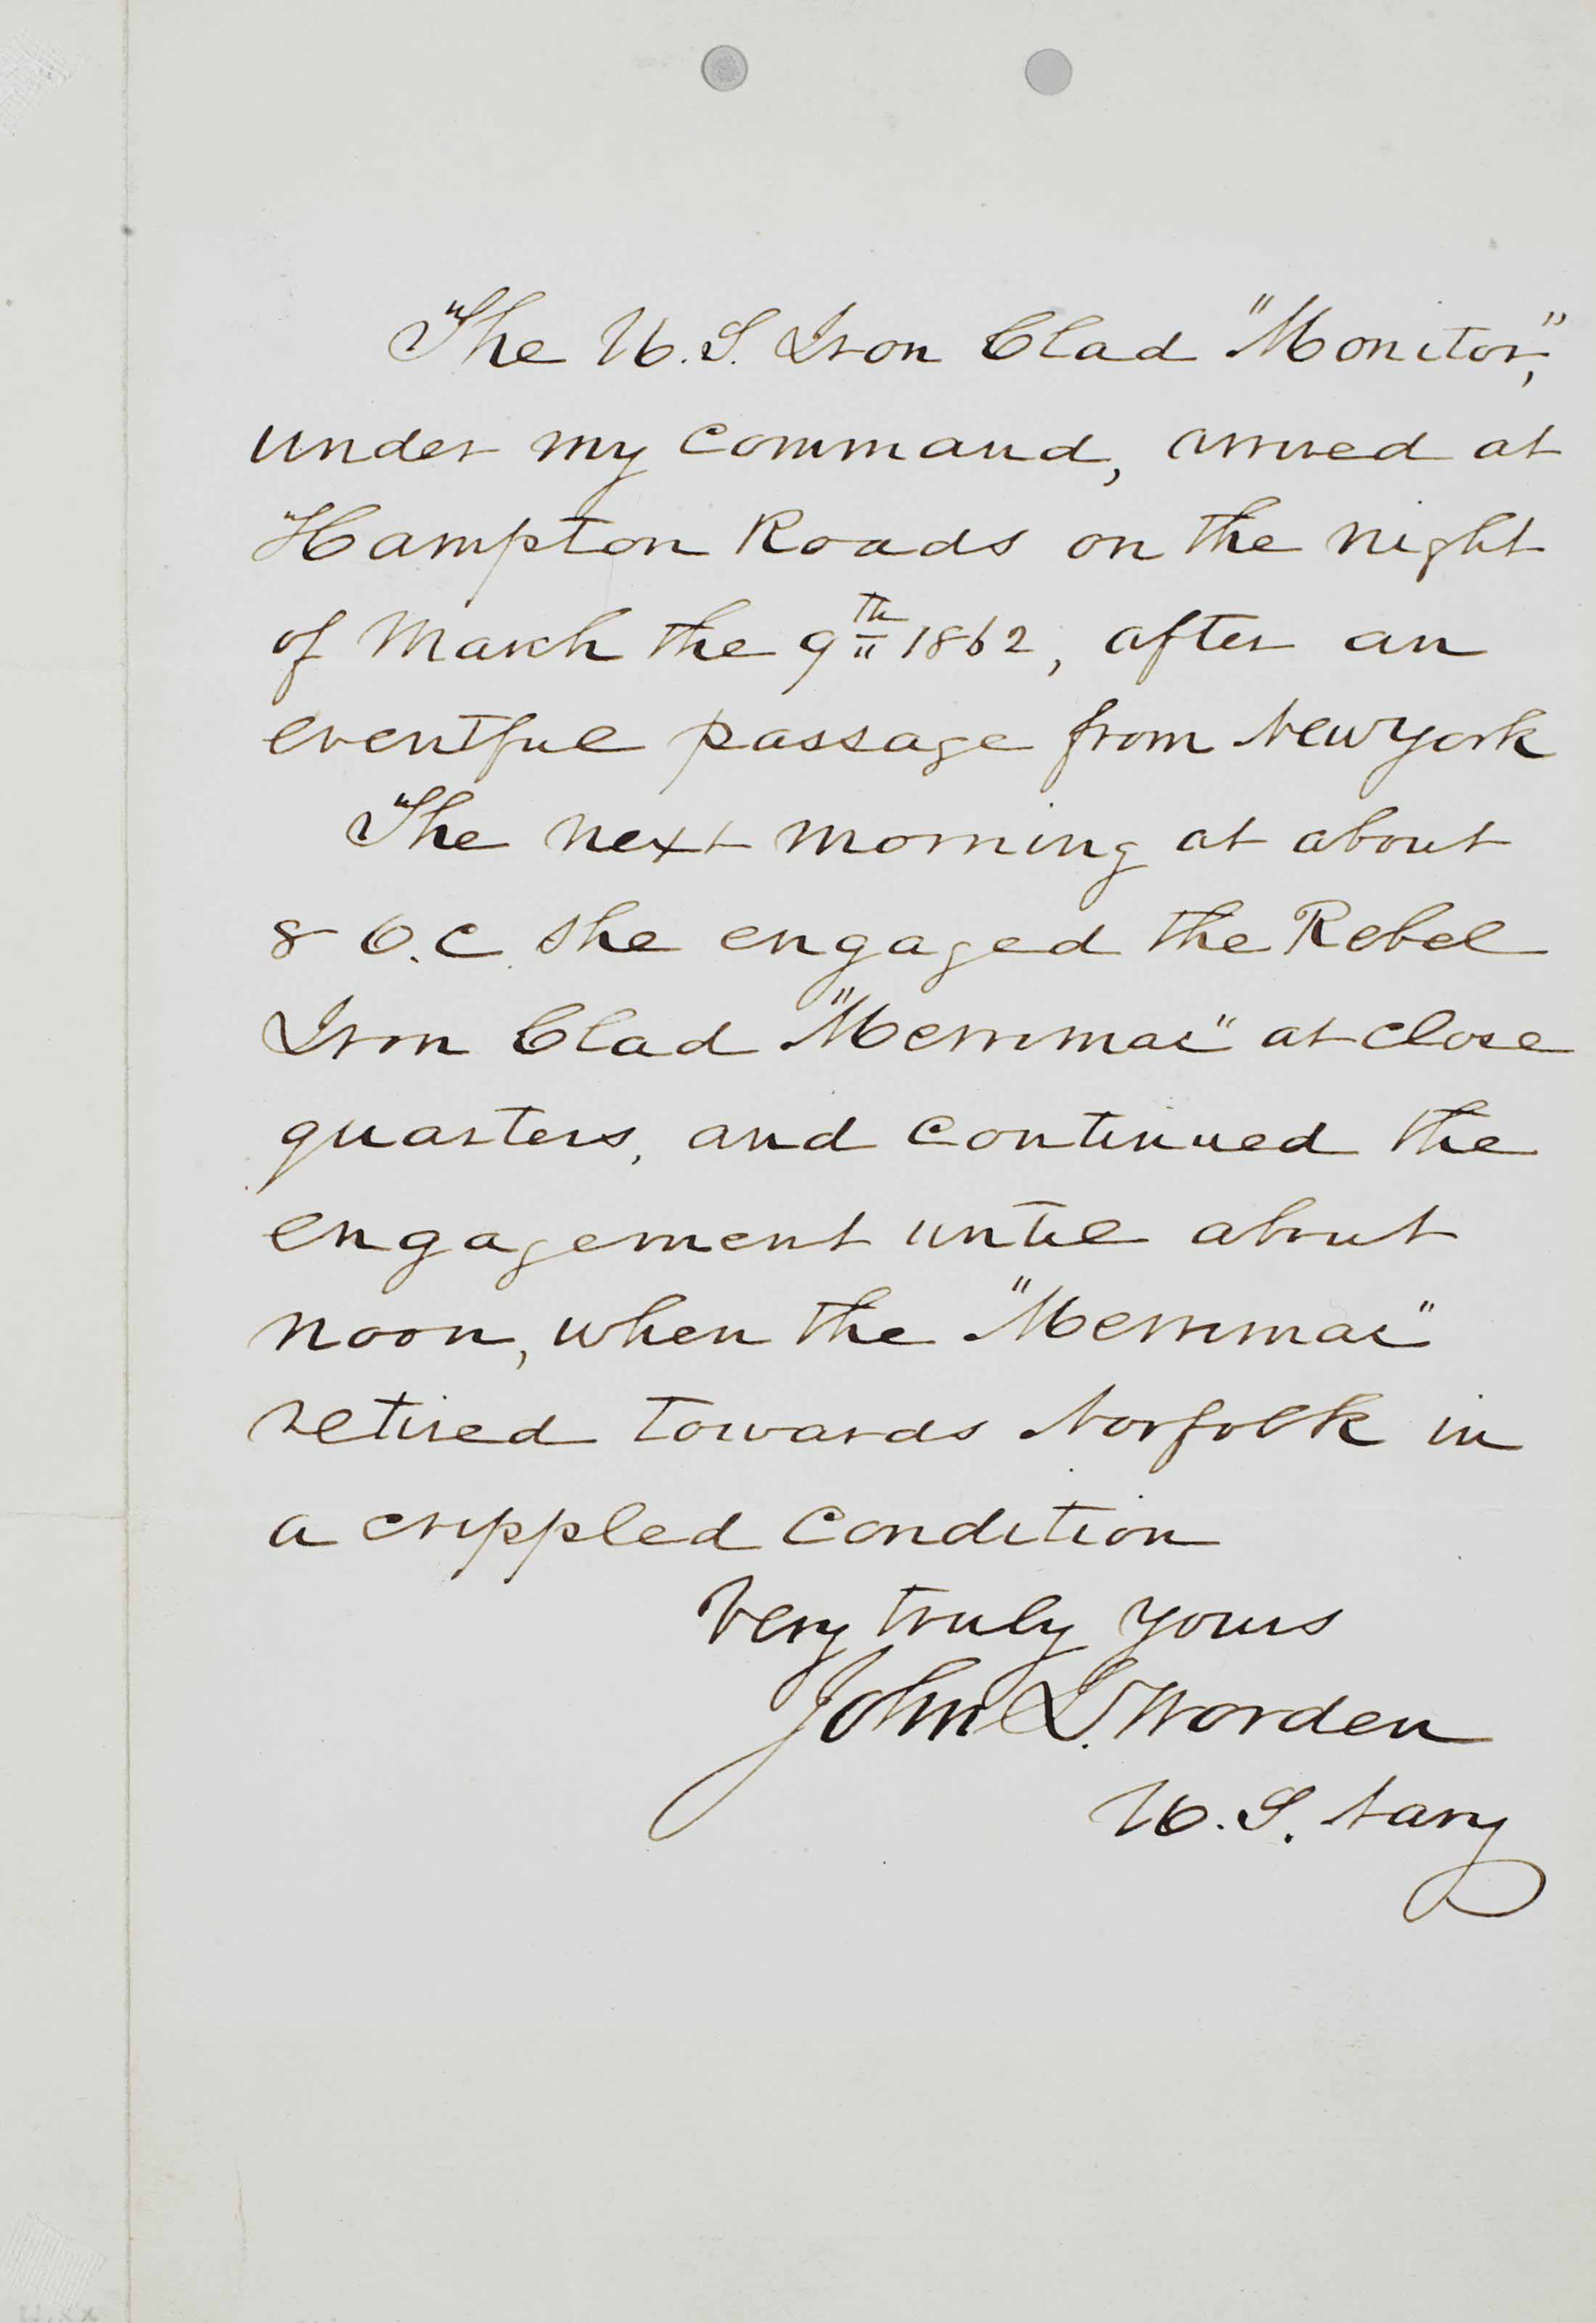 The U.S. Iron Clad "Monitor,"
under my command, arrived at
Hampton Roads on the night
of March the 9th 1862, after an
eventful passage from New York
The next morning at about
8 O.C. she engaged the Rebel
Iron Clad "Merrimac" at close
quarters, and continued the
engagement until about
noon, when the "Merrimac"
retired towards Norfolk in
a crippled condition
Very truly yours
John L. Worden
U.S. Navy